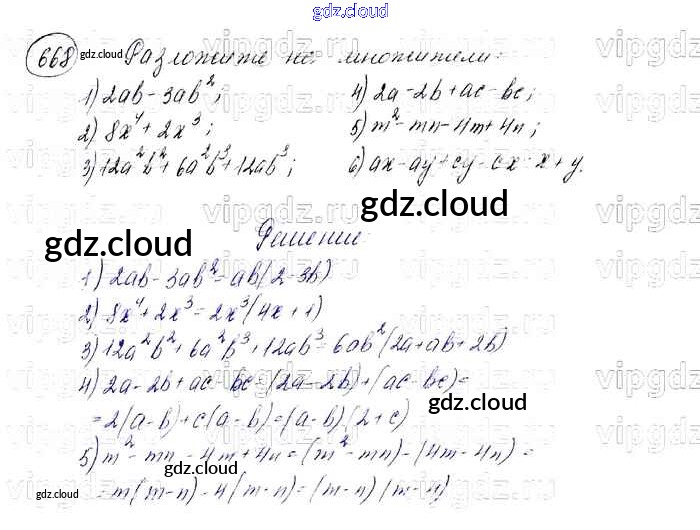 gdz.cloud
668 gdz.cloud Разложите на множители:
1) 2ab - 3ab²; 4) 2a - 2b + ac - bc;
2) 8x⁴ + 2x³; 5) m² - mn - 4m + 4n;
3) 12a²b² + 6a²b³ + 12ab³; 6) ax - ay + cy - cx - x + y.
gdz.cloud
gdz.cloud Решение:
1) 2ab - 3ab² = ab(2 - 3b)
2) 8x⁴ + 2x³ = 2x³(4x + 1)
3) 12a²b² + 6a²b³ + 12ab³ = 6ab²(2a + ab + 2b)
4) 2a - 2b + ac - bc = (2a - 2b) + (ac - bc) =
= 2(a - b) + c(a - b) = (a - b)(2 + c)
gdz.cloud
5) m² - mn - 4m + 4n = (m² - mn) - (4m - 4n) =
gdz.cloud
= m(m - n) - 4(m - n) = (m - n)(m - 4)
gdz.cloud
vipgdz.ru